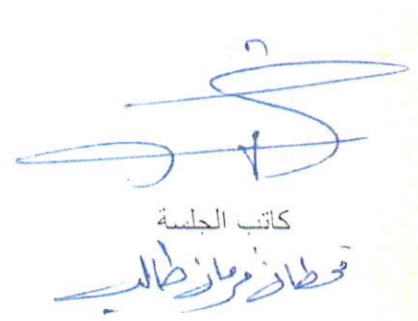 كاتب الجلسة
قحطان فرمان طالب